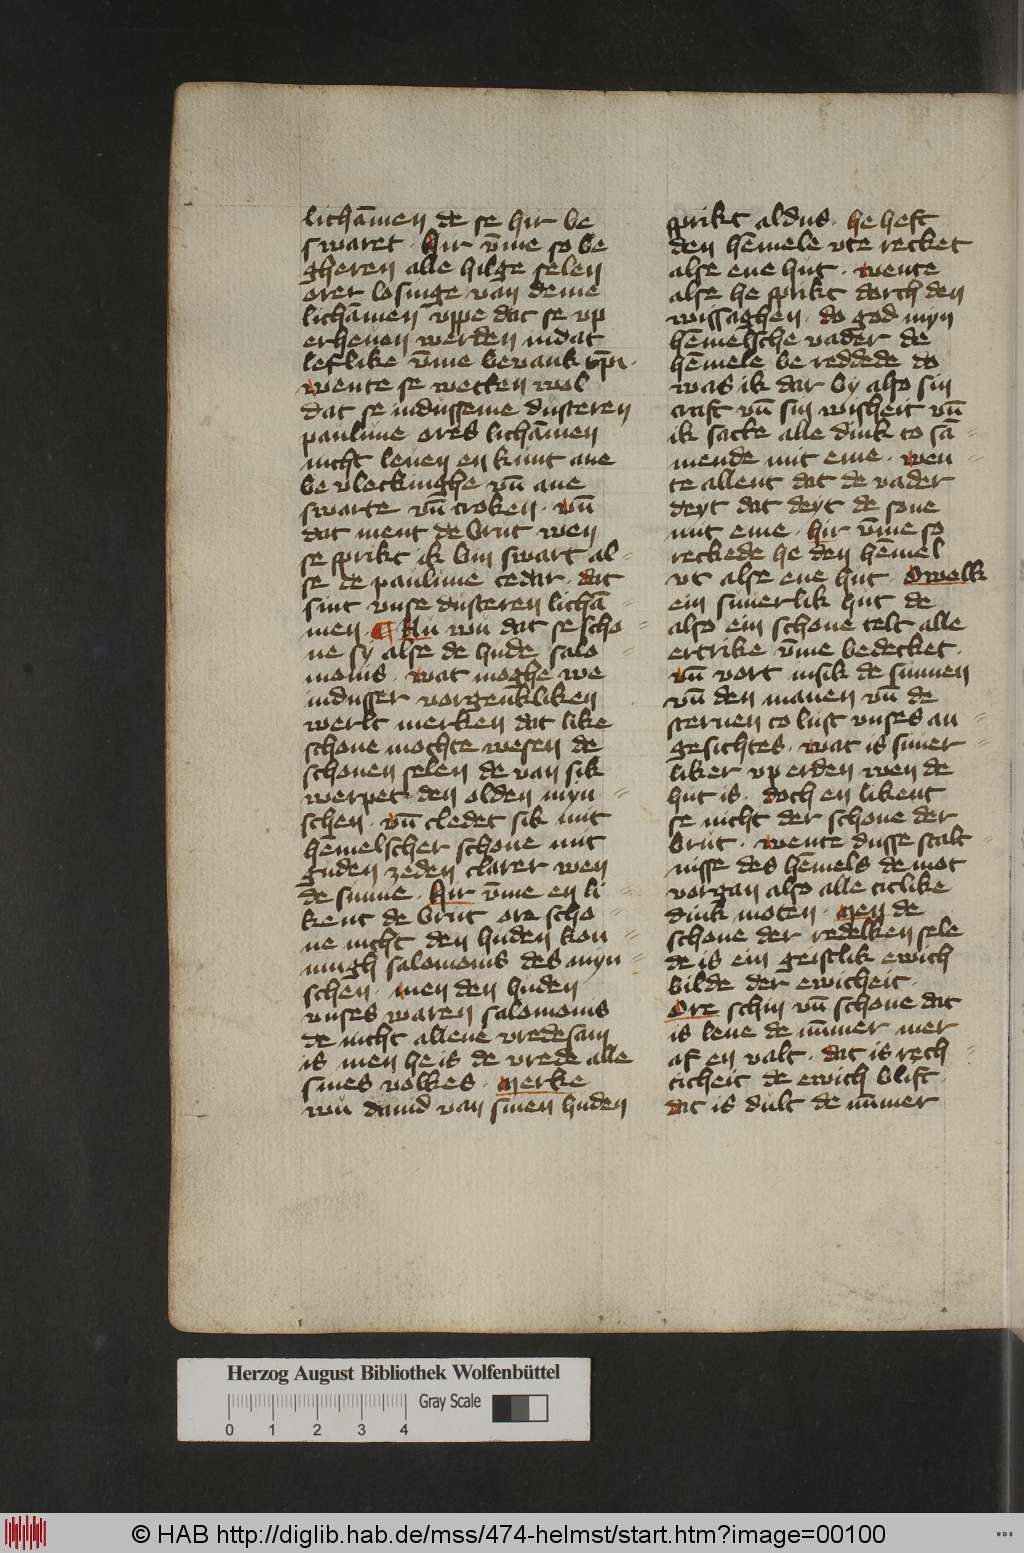 lichāmen de se hir be
swaret · hir v̄me so be
gheren alle hilge selen
orer losinge van deme
lichāmen vppe dat se vp
erheuen werden indat
leflike v̄me bevank
wente se weten wol
dat se indusseme dusteren
paulune ores lichāmen
nicht leuen en kunt ane
be vleckinghe vn̄ ane
swarte vn̄ croken · vn̄
dat ment de brut wen
se sprikt ik bin swart al-
se de paulune cedar · dat
sint vnse dusteren lichā-
men · ¶ Nu wu dat se scho-
ne sy alse de hude salo-
monis · wat moghe we
indusser vorgenkliken
werlt merken dat like
schone mochte wesen de
schonen selen de van sik
werpet den olden myn-
schen · vn̄ cledet sik mit
hēmelscher schone mit
guden zeden clarer wen
de sunne · hir v̄me en li-
kent de brut ore scho-
ne nicht den huden kon-
ningh salomonis des myn-
schen · men den huden
vnses waren salomonis
de nicht allene vredesam
is men he is de vrede alle
sines volkes · merke
wu dauid van sinen huden
sprikt aldus · he heft
den hēmele vte recket
alse ene hut · wente
alse he sprikt dorch den
wissaghen · do god myn
hēmelsche vader de
hēmele be reddede do
was ik dar by also sin
craft vn̄ sin wisheit vn̄
ik sacke alle dink to sā-
mende mit eme · wen-
te allent dat de vader
deyt dat deyt de sone
mit eme · hir v̄me so
reckede he den hēmel
vt alse ene hut · Owelk
ein suuerlik hut de
also ein schone telt alle
ertrike v̄me bedecket ·
vn̄ vort insik de sunnen
vn̄ den manen vn̄ de
sternen to lust vnses an-
gesichtes · wat is suuer-
liker vp erden wen de
hut is · doch en likent
se nicht der schone der
brut · wente dusse stalt-
nisse des hēmels de mot
vorgan also alle titlike
dink moten · men de
schone der redelken sele
de is ein geistlik ewich
bilde der ewicheit ·
Ore schin vn̄ schone dat
is leue de nūmer mer
af en valt · dat is rech-
ticheit de ewich blift
dat is dult de nūmer
Herzog August Bibliothek Wolfenbüttel
Gray Scale
0 1 2 3 4
© HAB http://diglib.hab.de/mss/474-helmst/start.htm?image=00100